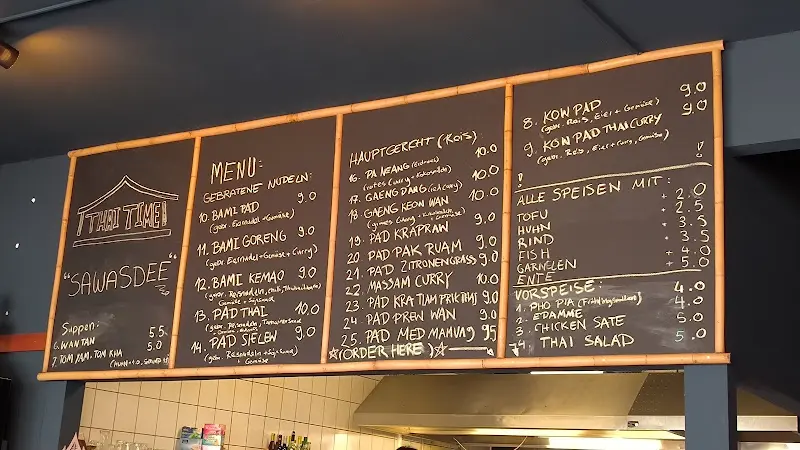 THAI TIME!
"SAWASDEE"
Suppen:
6. WAN TAN 5.5
7. TOM YAM, TOM KHA 5.0
MENU:
GEBRATENE NUDELN:
10. BAMI PAD 9.0
(gebr. Eiernudeln + Gemüse)
11. BAMI GORENG 9.0
(gebr. Eiernudel + Gemüse + Curry)
12. BAMI KEMAO 9.0
Gemüse
13. PAD THAI 10.0
14. PAD SIEW 9.0
+ Gemüse
HAUPTGERICHT (+Reis)
16. PANEANG (Erdnuss) 10.0
(rotes Curry + Kokosmilch)
17. GAENG DANG (rot Curry) 10.0
18. GAENG KEON WAN 10.0
(grünes Curry + Kokosmilch
+ Gemüse)
19. PAD KRAPRAW 9.0
20. PAD PAK RUAM 9.0
21. PAD ZITRONENGRASS 9.0
22. MASSAM CURRY 10.0
23. PAD KRA TIAM PRIK THAI 9.0
24. PAD PREW WAN 9.0
25. PAD MED MAMUAG 9.5
☆(ORDER HERE)☆
8. KOW PAD 9.0
(gebr. Reis, Eier + Gemüse)
9. KOW PAD THAI CURRY 9.0
(gebr. Reis, Eier + Curry, Gemüse)
! !
ALLE SPEISEN MIT:
TOFU + 2.0
HUHN + 2.5
RIND + 3.5
FISH + 3.5
GARNELEN + 4.0
ENTE + 5.0
VORSPEISE:
1. PHO PIA (Frühlingsrollen) 4.0
2. EDAMME 4.0
3. CHICKEN SATE 5.0
4. THAI SALAD 5.0